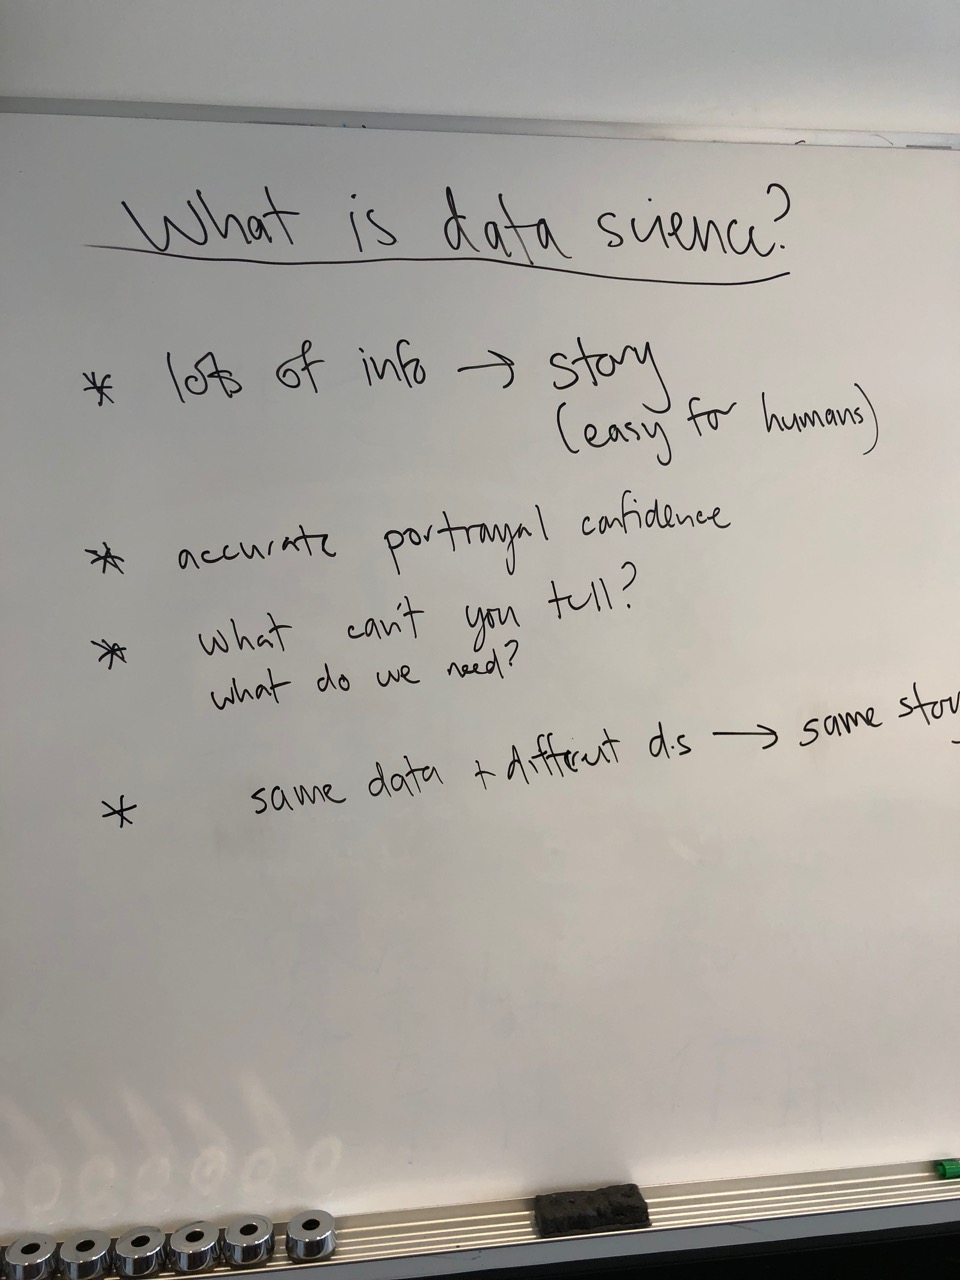 What is data science?
* lots of info → story
(easy for humans)
* accurate portrayal confidence
* what can't you tell?
what do we need?
* same data + different d.s → same story